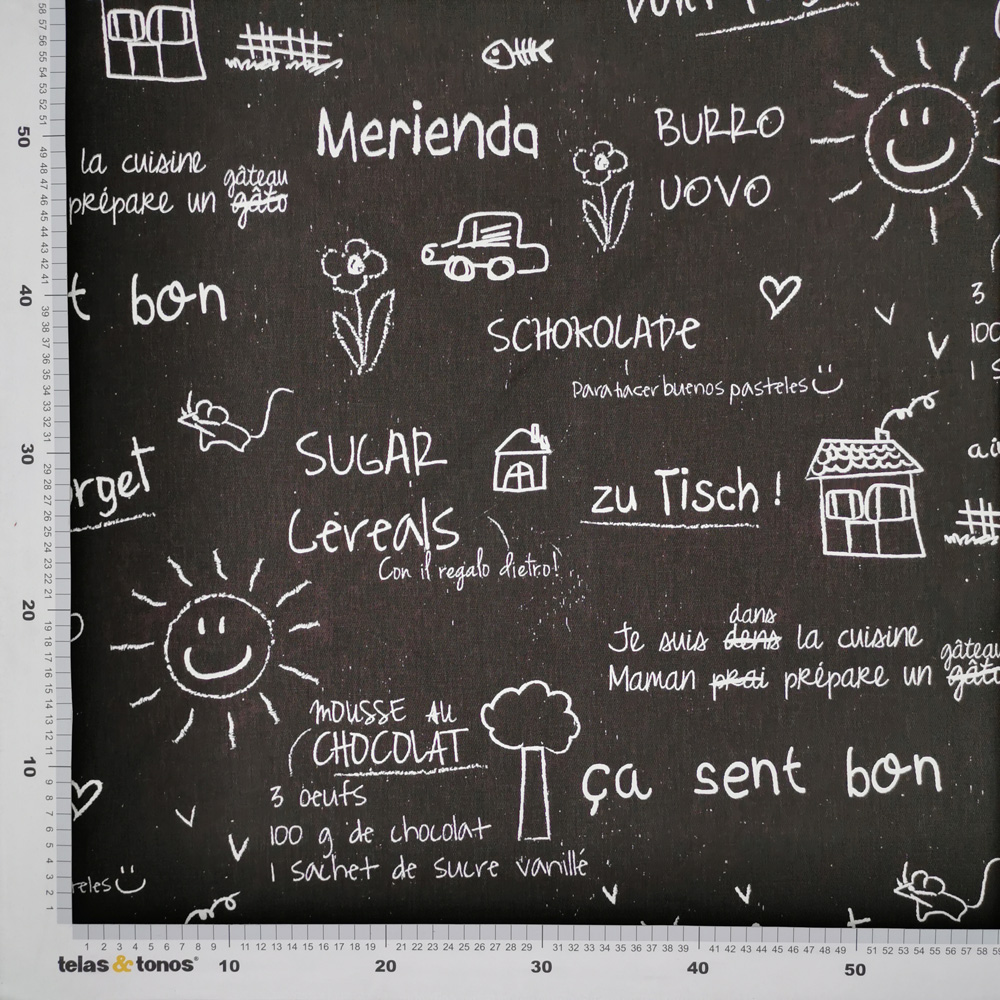 Merienda
BURRO
UOVO
la cuisine
gâteau
prépare un gâto
t bon
SCHOKOLADE
Para hacer buenos pasteles
3
100
1 S
SUGAR
Cereals
Con il regalo dietro!
rget
zu Tisch!
dans
Je suis dens la cuisine
gâteau
Maman prai prépare un gâto
MOUSSE AU
CHOCOLAT
3 oeufs
100 g de chocolat
1 sachet de sucre vanillé
ça sent bon
teles
telas & tonos
10 20 30 40 50
10 20 30 40 50